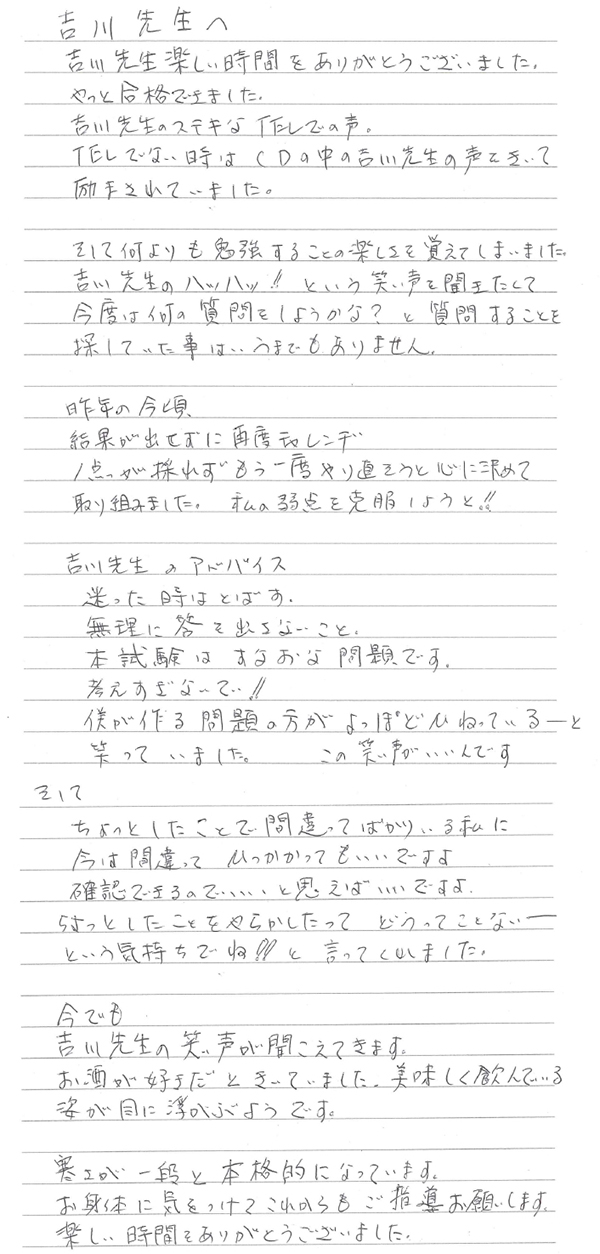 吉川先生へ
吉川先生楽しい時間をありがとうございました。
やっと合格できました。
吉川先生のステキなTELでの声。
TELでない時はCDの中の吉川先生の声をきいて
励まされていました。
そして何よりも勉強することの楽しさを覚えてしまいました。
吉川先生のハッハッ!!という笑い声を聞きたくて
今度は何の質問をしようかな?と質問することを
探していた事はいうまでもありません。
昨年の今頃
結果が出せずに再度チャレンヂ
1点っが採れずもう一度やり直そうと心に決めて
取り組みました。私の弱点を克服しようと!!
吉川先生のアドバイス
迷った時はとばす。
無理に答を出さないこと。
本試験はすなおな問題です。
考えすぎないで!!
僕が作る問題の方がよっぽどひねっているーと
笑っていました。 この笑い声がいいんです
そして
ちょっとしたことで間違ってばかりいる私に
今は間違ってひっかかってもいいですよ
確認できるのでいいと思えばいいですよ。
ちょっとしたことをやらかしたってどうってことないー
という気持ちでね!!と言ってくれました。
今でも
吉川先生の笑い声が聞こえてきます。
お酒が好きだときいていました。美味しく飲んでいる
姿が目に浮かぶようです。
寒さが一段と本格的になっています。
お身体に気をつけてこれからもご指導お願いします。
楽しい時間をありがとうございました。